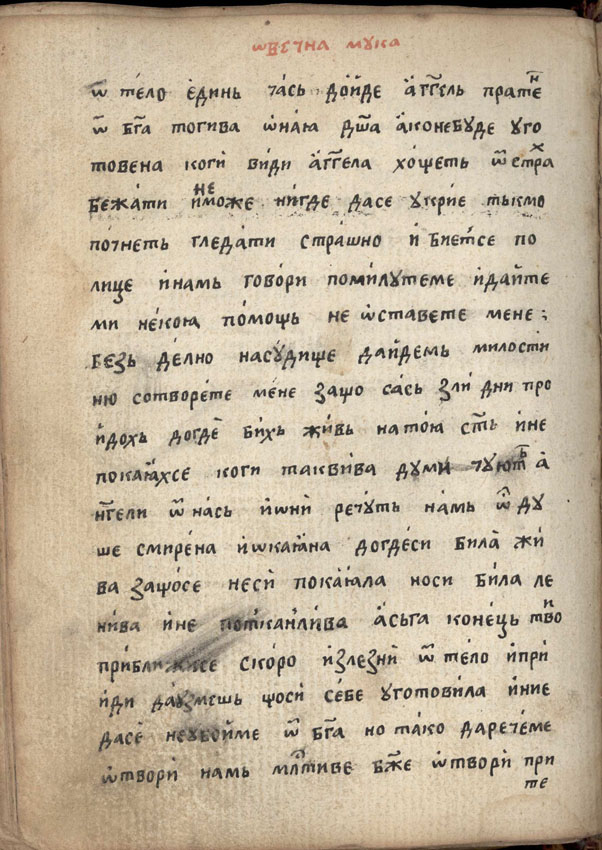 ѡвечна мука
ѿ тѣло єдинь часъ дойде а҆гг҃ель пратѣн
ѿ бг҃а тогива ѡнаꙗ дш҃а аконебуде уго
товена коги види а҆гг҃ела хощеть ѿ страх
бежати и неможе нигде дасе укрие тькмо
почнеть гледати страшно и биетсе по
лице инамь говори помилуитеме идайте
ми некоꙗ помощь не ѡставете мене ;
безь делно насудище даидемь милости
ню сотворете мене защо сась зли дни про
идохь догде бихь живь натоꙗ ст҃ь ине
покаꙗхсе коги таквива думи чуютъ а
нгели ѿ нась иѡни речуть намь ѽ ду
ше смирена иѡкаꙗна догдеси била жи
ва защосе неси покаꙗла носи била ле
нива ине потканлива асьга конець твои
приближисе скоро излезни ѿ тело ипри
иди даузмешь щоси себе уготовила иние
дасе неубоиме ѿ бг҃а но тако даречеме
ѡтвори намь млⷭ҇тиве бж҃е ѡтвори при
те